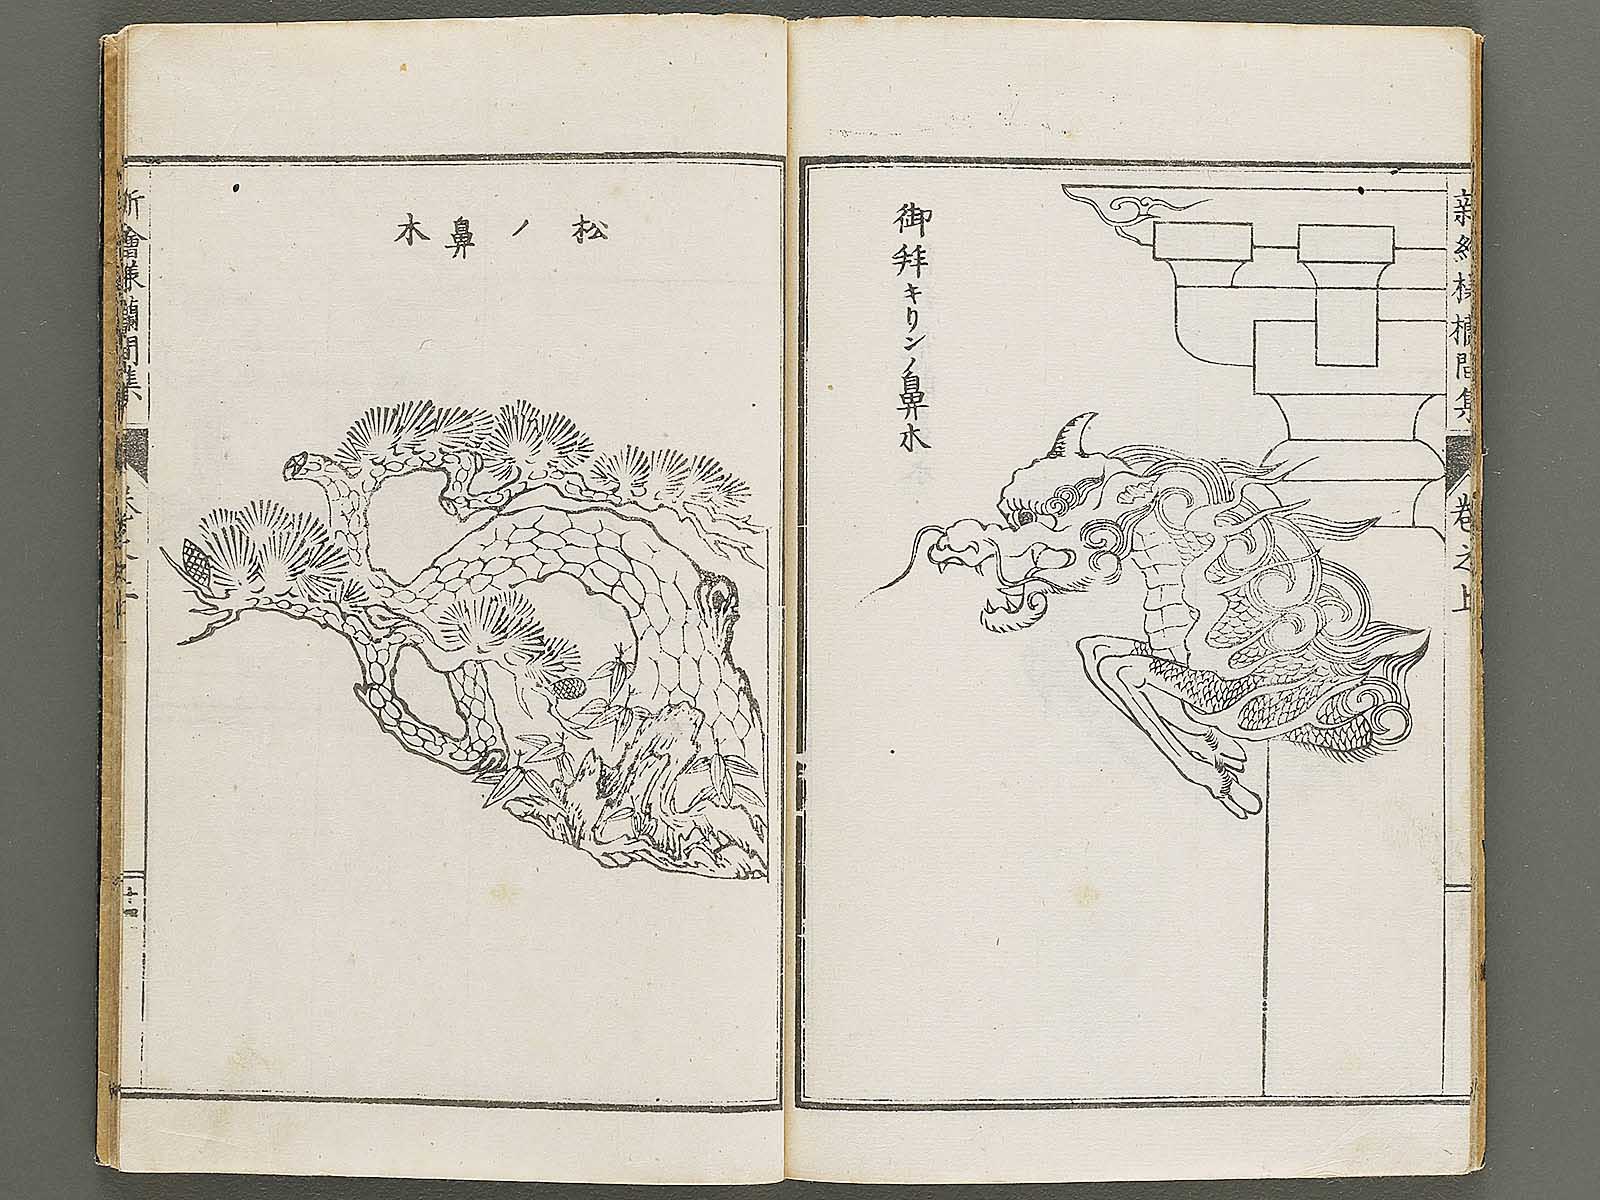 新絵様欄間集
巻之上
御拜キリンノ鼻木
松ノ鼻木
新繪様欄間集
巻之上
十四